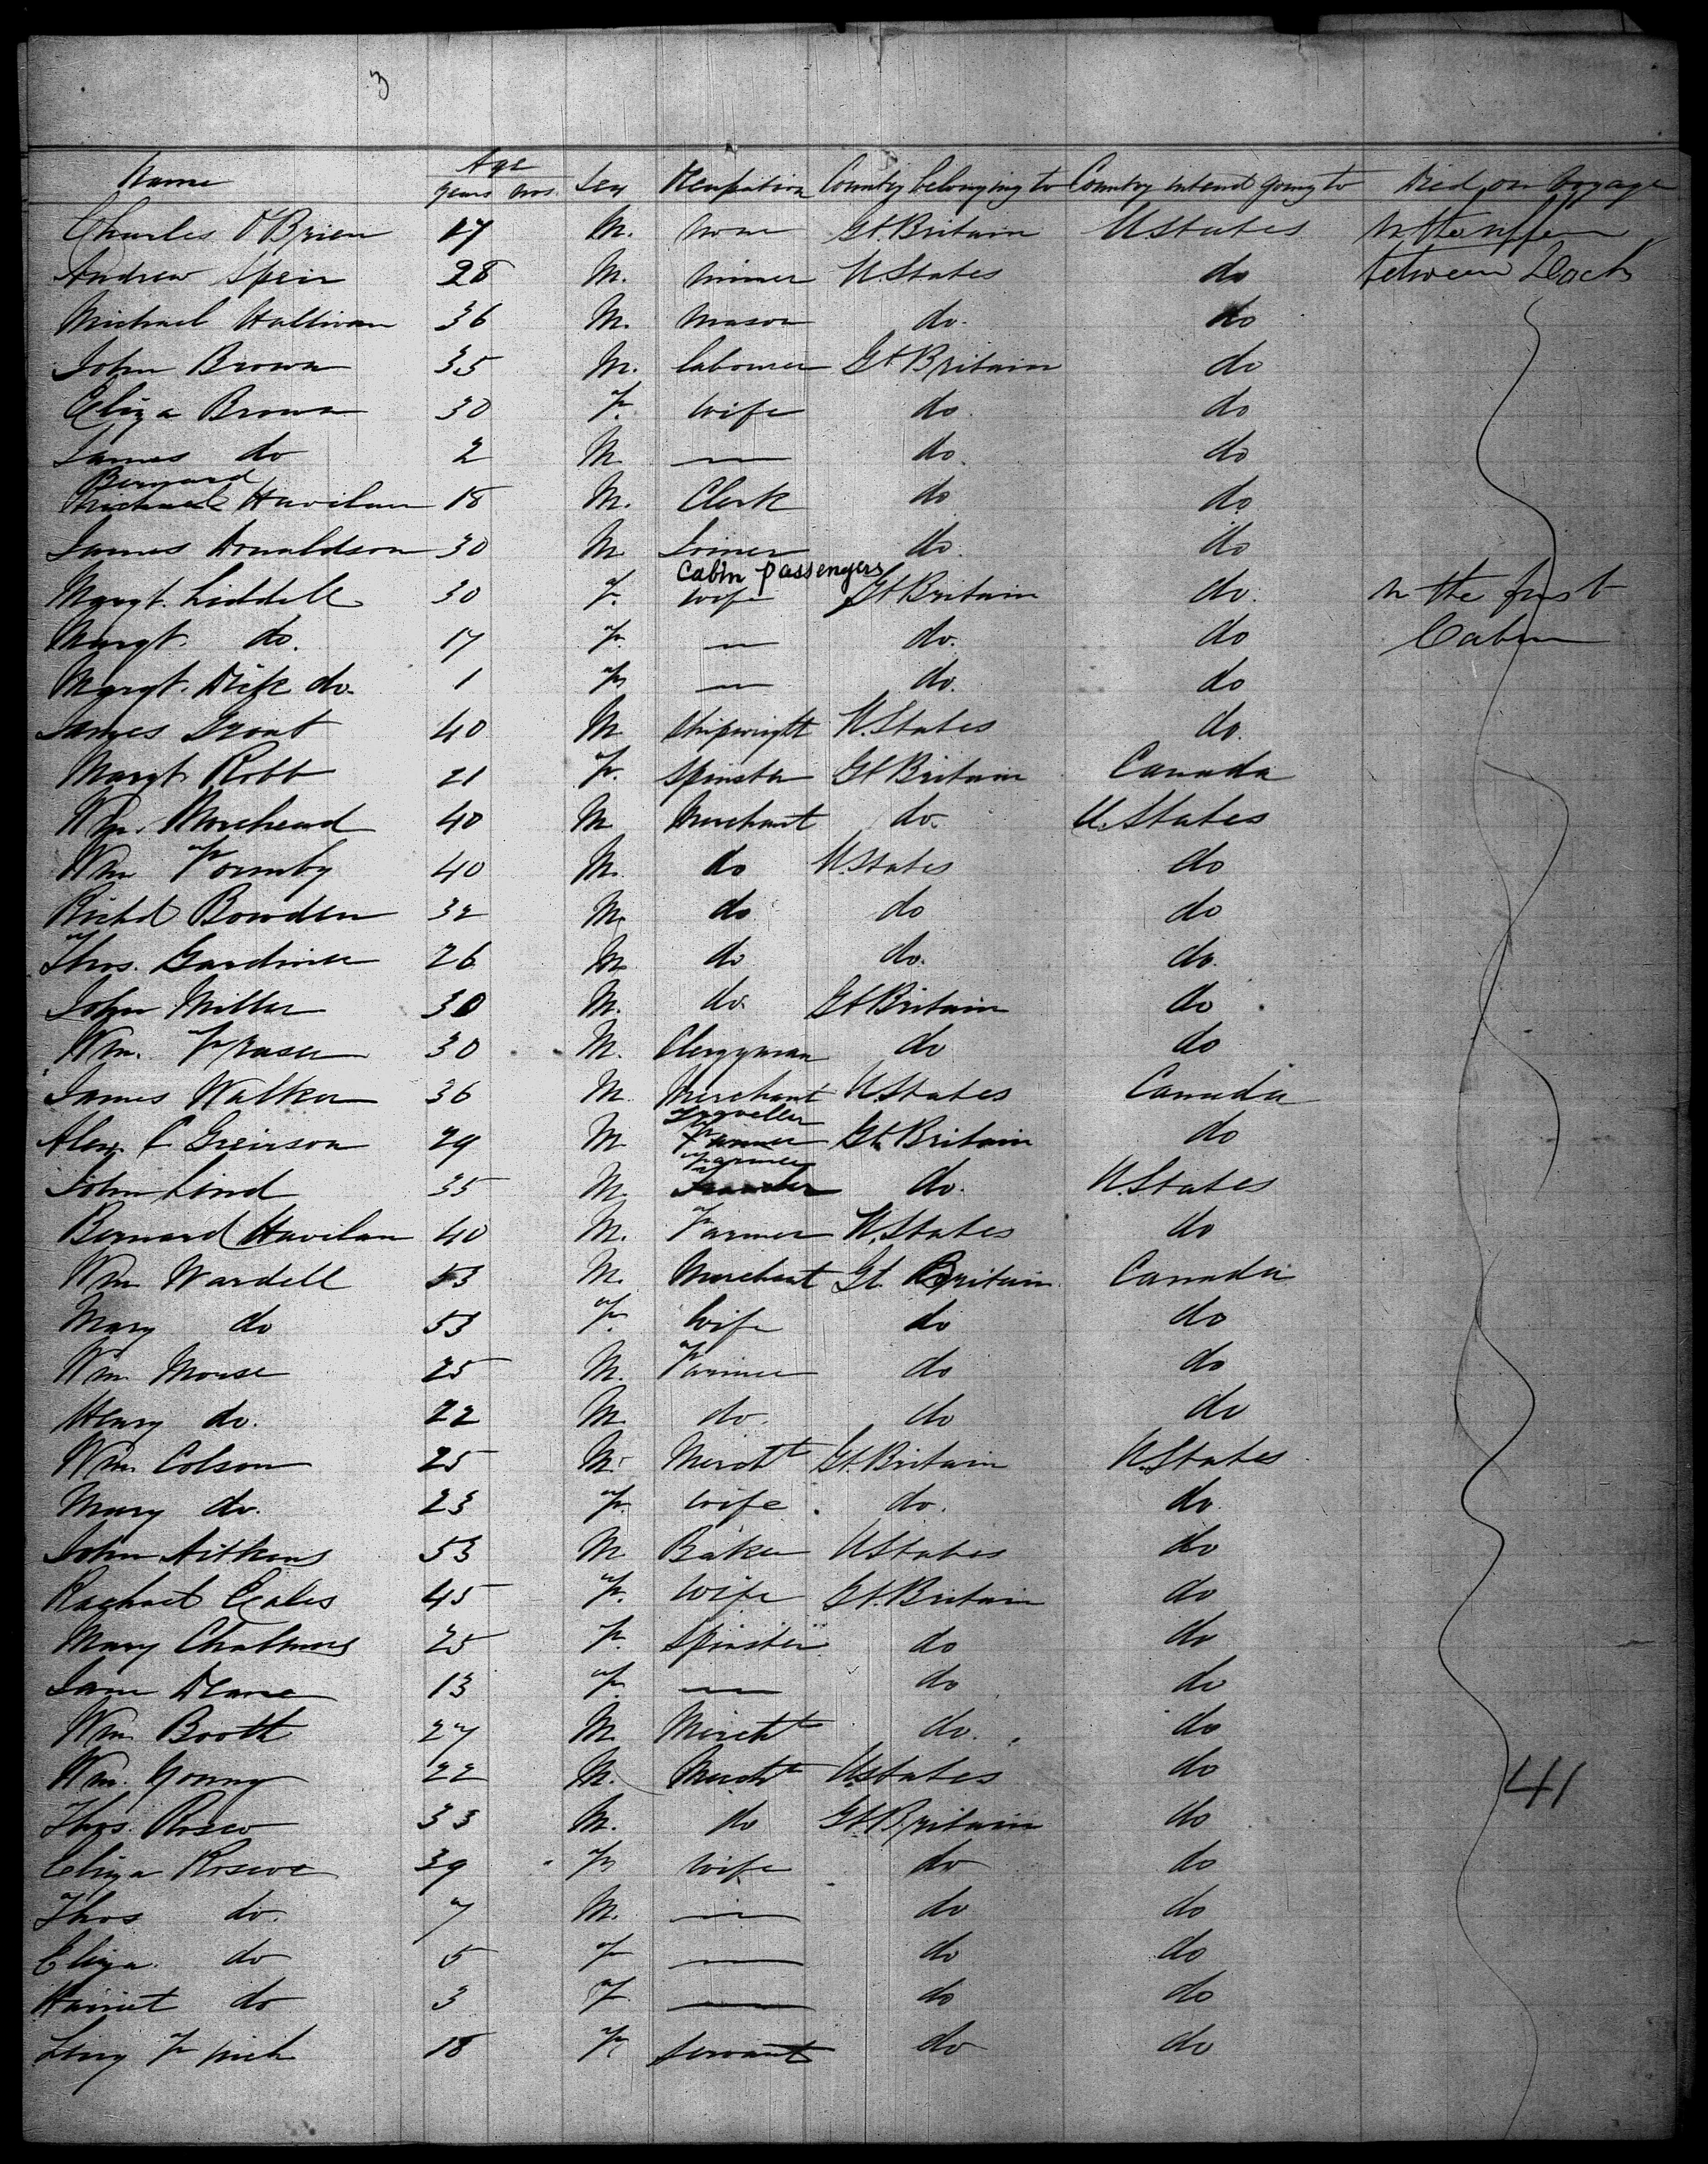 3
Age
Name years mos. Sex Occupation Country belonging to Country intend going to Died on Voyage
Charles O'Brien 17 M. none Gt. Britain U States In the upper
Andrew Speir 28 M. miner U. States do between Decks
Michael Hallivan 36 M. mason do. do
John Brown 35 M. labourer Gt Britain do
Eliza Brown 30 F. wife do. do
James do 2 M — do. do
Bernard
Michael Havilan 18 M. Clerk do do
James Donaldson 30 M Joiner do. do
Cabin Passengers
Margt. Liddell 30 F. wife Gt Britain do. In the first
Margt. do. 17 F. — do. do Cabin
Margt. Dick do. 1 F — do. do
James Grant 40 M Shipwright U. States do.
Margt. Robb 21 F. Spinster Gt Britain Canada
Wm. Morehead 40 M Merchant do. U. States
Wm Formby 40 M. do U. States do
Richd Bowden 32 M. do do do
Thos. Gardiner 26 M. do do. do.
John Miller 30 M. do. Gt Britain do
Wm. Fraser 30 M. Clergyman do do
James Walker 36 M Merchant U States Canada
Traveller
Alex. C Greirson 29 M Farmer Gt. Britain do
Farmer
John Lind 35 M. do. U. States
Bernard Havilan 40 M. Farmer U. States do
Wm Wardell 53 M. Merchant Gt. Britain Canada
Mary do 53 F. Wife do do
Wm Morse 25 M. Farmer do do
Henry do. 22 M. do. do do
Wm Colson 25 M. Mercht Gt. Britain U. States
Mary do. 23 F. wife. do. do.
John Aitkens 53 M Baker U States do
Rachael Eales 45 F. Wife Gt. Britain do
Mary Chalmers 25 F. Spinster do do
Jane Deane 13 F. — do do
Wm Booth 27 M. Mercht do. do
Wm. Young 22 M. Mercht U. States do 41
Thos. Roscoe 33 M. do Gt. Britain do
Eliza Roscoe 39 F wife do do
Thos do. 7 M. — do do
Eliza do 5 F — do do
Harriet do 3 F — do do
18 F. Servant do do